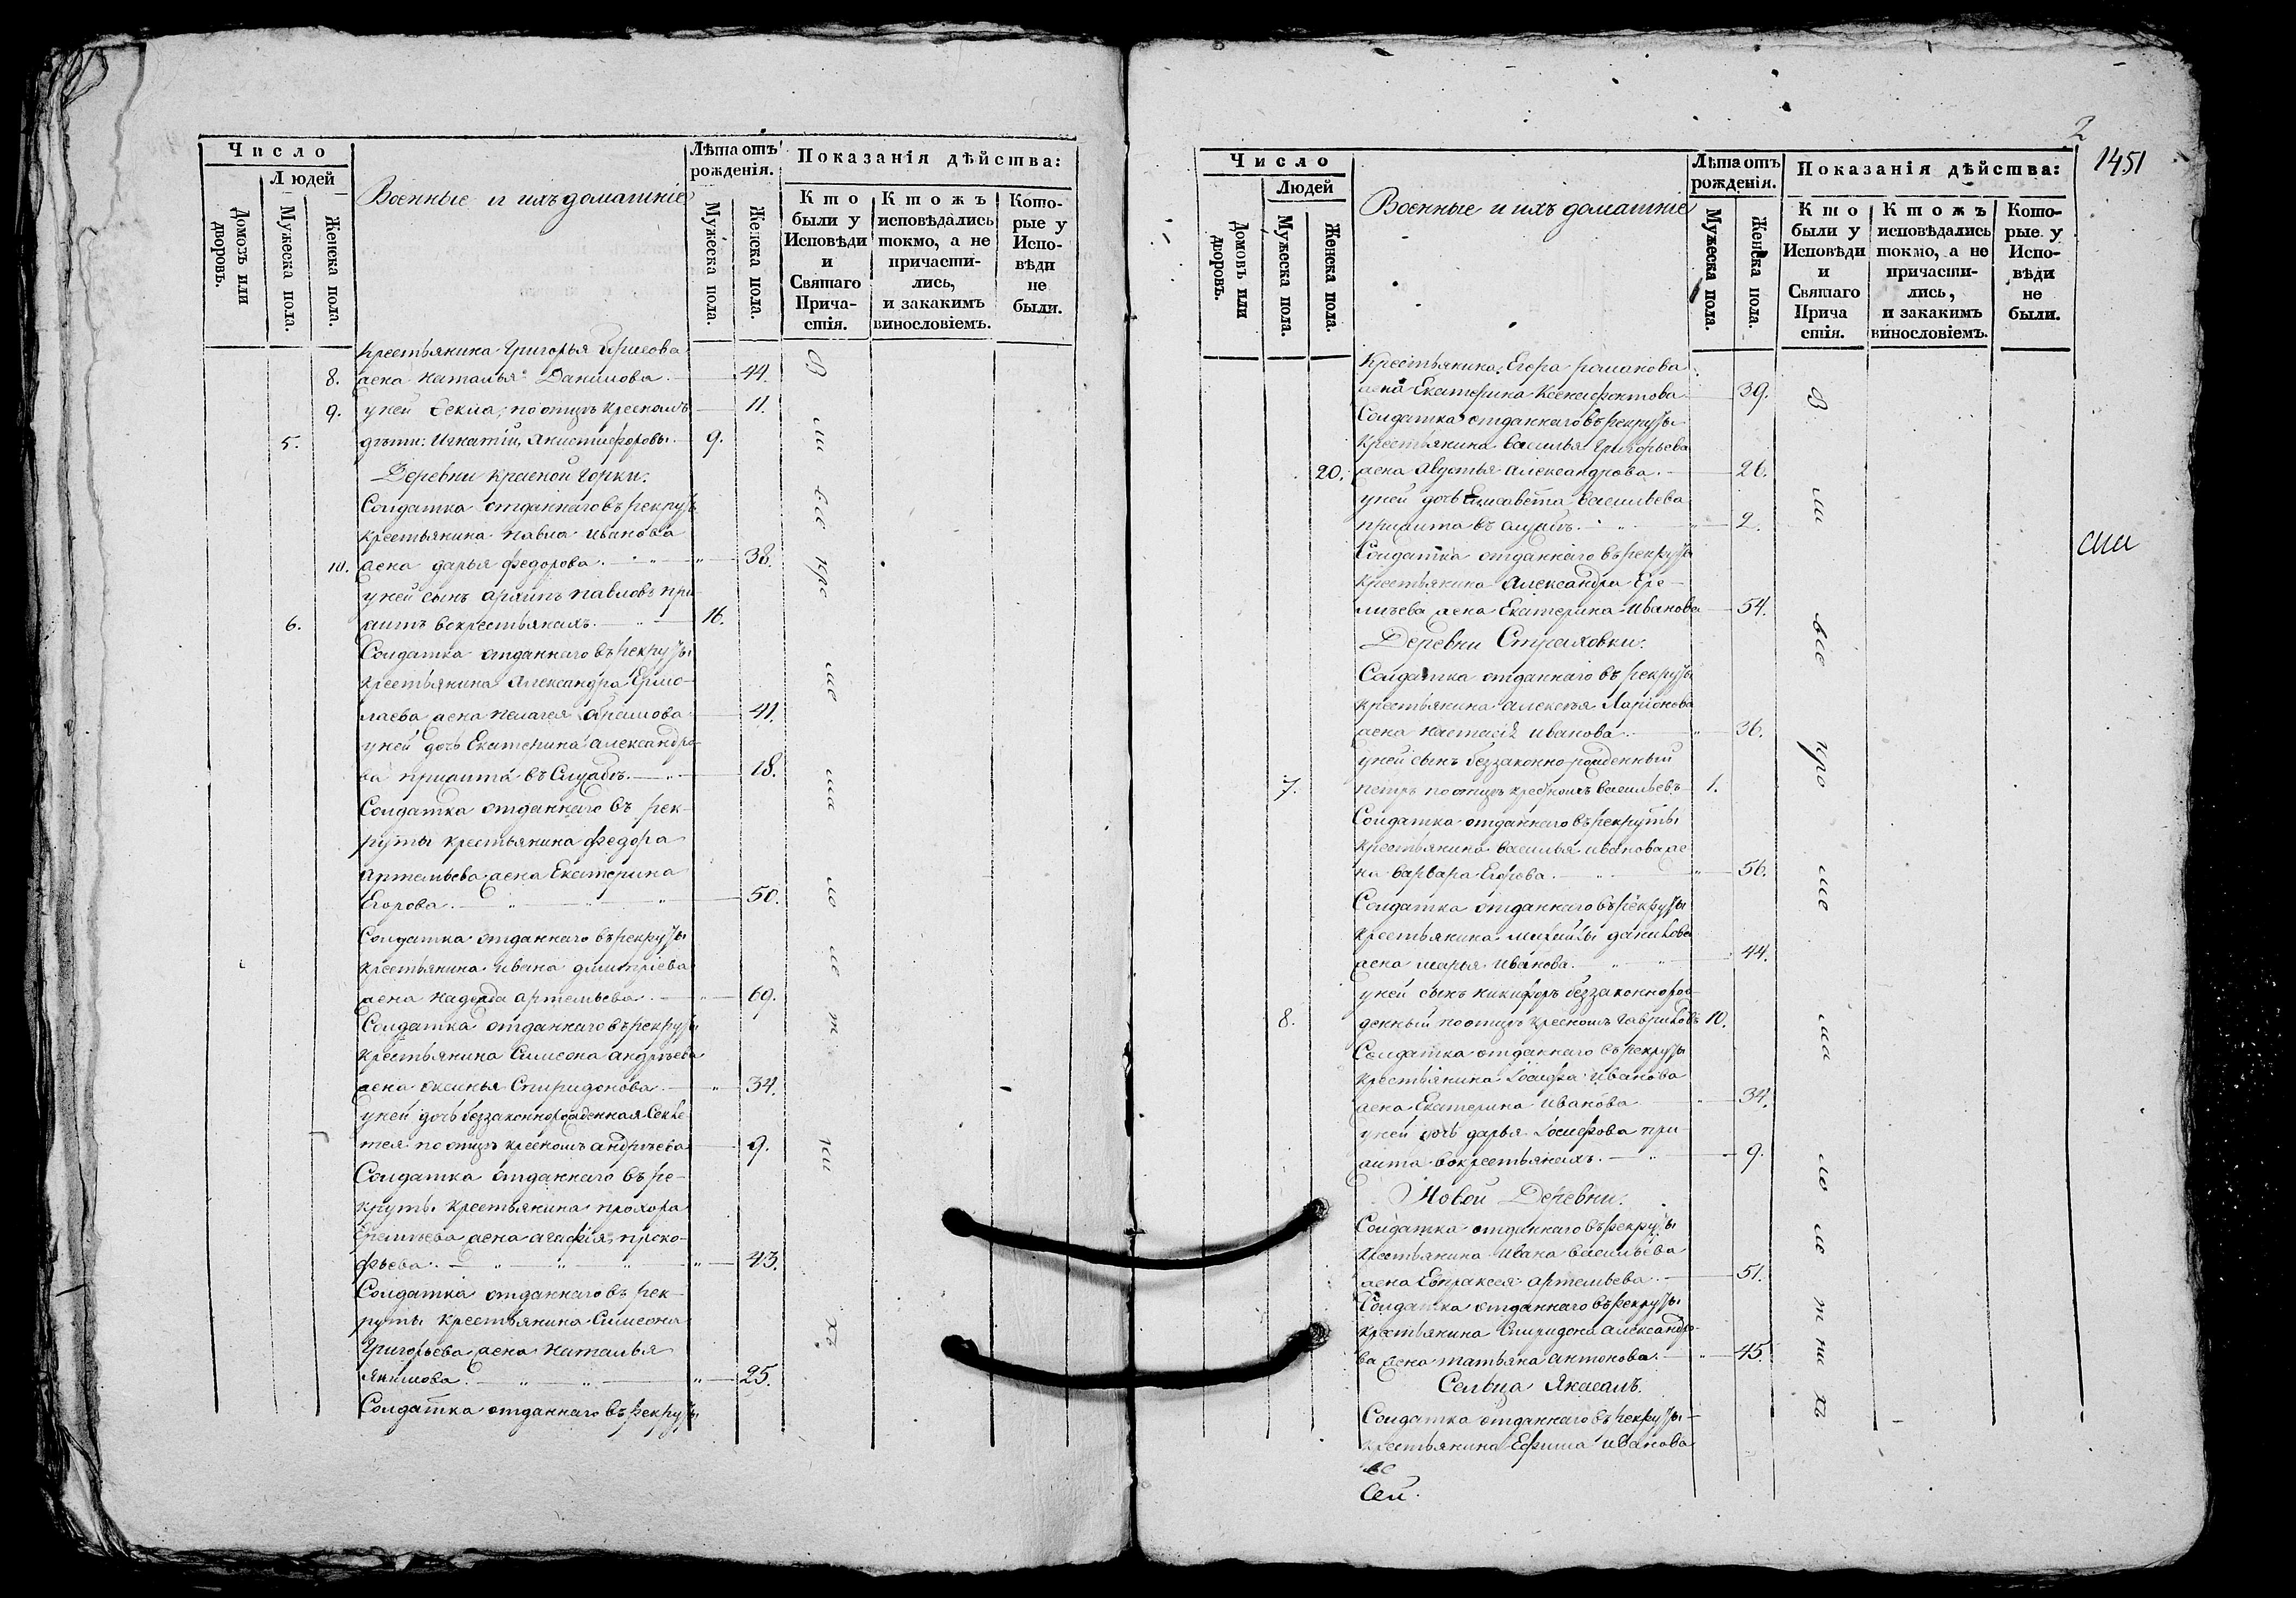 Число
Людей
Домовъ или дворовъ.
Мужеска пола.
Женска пола.
Военные и ихъ домашніе
Лѣта отъ рожденія.
Мужеска пола.
Женска пола.
Показанія дѣйства:
Кто были у Исповѣди и Святаго Прича-стія.
Ктожъ исповѣдались токмо, а не причасти-лись, и закакимъ винословіемъ.
Кото-рые у Испо-вѣди не были.
крестьянина Григорья
8. жена Наталья Данилова. 44.
9. у ней Фекла, по отцѣ кресномъ 11.
5. дѣти: Игнатій, Никифоровы. 9.
Деревни Красной Горки.
Солдатка отданнаго въ рекруты
крестьянина Павла Иванова
10. жена Дарья Федорова. 38.
у ней сынъ Архипъ Павловъ при-
6. житъ вокрестьянахъ. 16.
Солдатка отданнаго въ рекруты
крестьянина Александра Ермо-
лаева жена Пелагея Анисимова 41.
у ней дочь Екатерина Александро-
ва прижита въ Службѣ. 18.
Солдатка отданнаго въ рек-
руты крестьянина Федора
Артемьева жена Екатерина
Егорова. 50.
Солдатка отданнаго въ рекруты
крестьянина Ивана Дмитріева
жена Надежда Артемьева. 69.
Солдатка отданнаго въ рекруты
крестьянина Симеона Андрѣева
жена Оксинья Спиридонова. 34.
у ней дочь беззаконнорожденная Секле-
тея по отцѣ кресномъ Андрѣева 9.
Солдатка отданнаго въ ре-
круты крестьянина Прохора
Еремѣева жена Агафія Проко-
фьева. 43.
Солдатка отданнаго въ рек-
руты крестьянина Симеона
Григорьева жена Наталья
Якимова. 25.
Солдатка отданнаго въ рекруты
2
1451
Число
Людей
Домовъ или дворовъ.
Мужеска пола.
Женска пола.
Военные и ихъ домашніе
Лѣта отъ рожденія.
Мужеска пола.
Женска пола.
Показанія дѣйства:
Кто были у Исповѣди и Святаго Прича стія.
Ктожъ исповѣдались токмо, а не причасти-лись, и закакимъ винословіемъ.
Кото-рые у Испо-вѣди не были.
Крестьянина Егора Романова
жена Екатерина Ксенофонтова 39.
Солдатка отданнаго въ рекруты
крестьянина Василья Григорьева
20. жена Авдотья Александрова. 26.
у ней дочь Елисавета Васильева
прижита въ службѣ. 2.
Солдатка отданнаго въ рекруты
крестьянина Александра Ере-
мѣева жена Екатерина Иванова 54.
Деревни Страховки.
Солдатка отданнаго въ рекруты
крестьянина Алексѣя Ларіонова
жена Настасія Иванова. 36.
у ней сынъ беззаконно рожденный
7. Петръ по отцѣ кресномъ Васильевъ 1.
Солдатка отданнаго въ рекруты
крестьянина Василья Иванова же
на Варвара Егорова. 56.
Солдатка отданнаго въ рекруты
крестьянина Михайлы Данилова
жена Марья Иванова. 44.
у ней сынъ Никифоръ беззаконнорож-
8. денный по отцѣ кресномъ Гавриловъ 10.
Солдатка отданнаго въ рекруты
крестьянина Іосифа Иванова
жена Екатерина Иванова 34.
у ней дочь Дарья Іосифова при-
жита вокрестьянахъ. 9.
Новой Деревни.
Солдатка отданнаго въ рекруты
крестьянина Ивана Васильева
жена Епраксея Артемьева. 51.
Солдатка отданнаго въ рекруты
крестьянина Спиридона Александро-
ва жена Татьяна Антонова. 45.
Сельца
Солдатка отданнаго въ рекруты
крестьянина Ефима Иванова